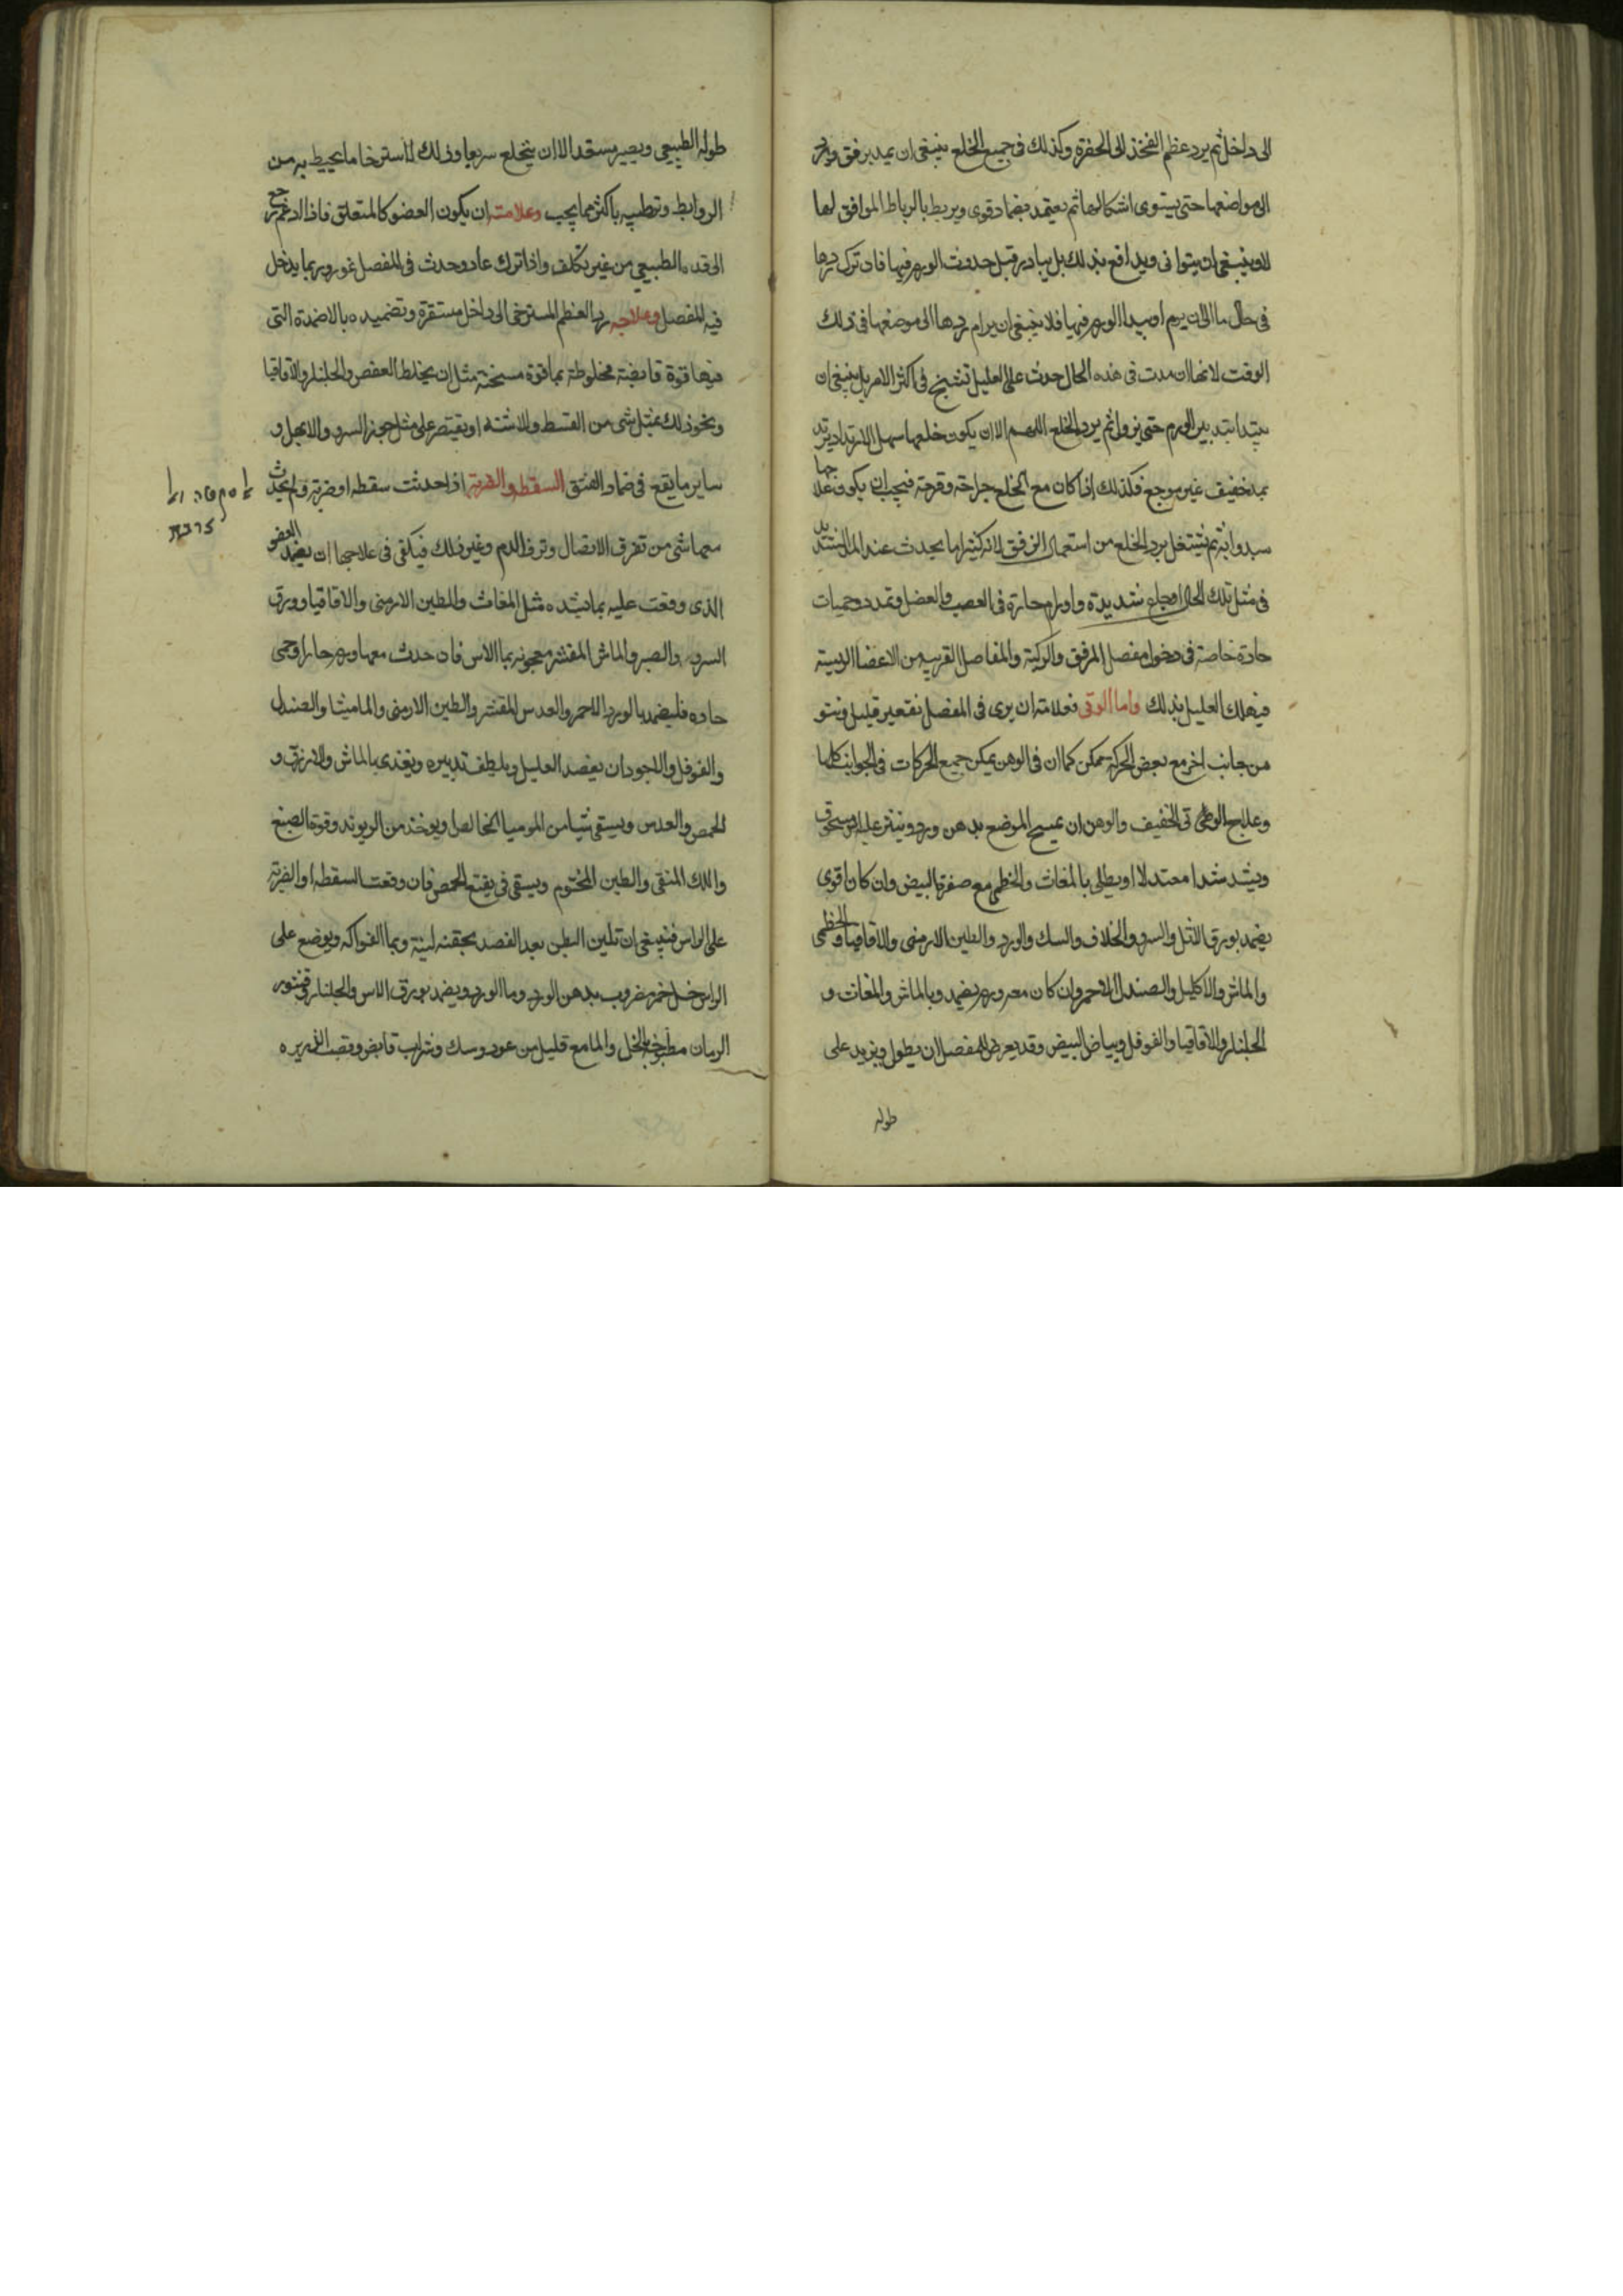 الى داخل ثم يرد عظم الفخذ الى الحفرة وكذلك فى جميع الخلع ينبغى ان يمد برفق ويرد
الى مواضعها حتى يستوى اشكالها ثم يعتمد بضماد قوى ويربط بالرباط الموافق لها
ولا ينبغى ان يتوانى ويدافع بذلك بل يبادر قبل حدوث الورم فيها فان ترك ردها
فى حال ما الى ان يرم او يبدا الورم فيها فلا ينبغى ان يرام ردها الى موضعها فى ذلك
الوقت لانها ان مدت فى هذه الحال حدث على العليل تشنج فى اكثر الامر بل ينبغى ان
يبتدا بتدبير الورم حتى يزول ثم يرد الخلع اللهم الا ان يكون خلعها سهل الارتداد يرتد
بمد خفيف غير موجع فكذلك اذا كان مع الخلع جراحة وقرحة فيجب ان يكون علاجها
ثم يشتغل برد الخلع من استعمال الرفق لانه كثيرا ما يحدث عند المد الشديد
فى مثل تلك الحال اوجاع شديدة واورام حارة فى العصب والعضل وتمدد وحميات
حادة خاصة فى دخول مفصل المرفق والركبة والمفاصل القريبه من الاعضا الرييسة
فيهلك العليل بذلك واما الوثى فعلامته ان يرى فى المفصل تقعير قليل ونتو
من جانب اخر مع بعض الحركة ممكن كما ان فى الوهن يمكن جميع الحركات فى الجوانب كلها
وعلاج الوثى الخفيف والوهن ان يمسح الموضع بدهن ورد وينثر عليه اس مسحوق
ويشد شدا معتدلا او يطلى بالمغاث والخطمى مع صفرة البيض وان كان اقوى
يضمد بورق الاثل والسرو والخلاف والسك والورد والطين الارمنى والاقاقيا والخطمى
والماش والاكليل والصندل الاحمر وان كان معه ورم يضمد وبالماش والمغاث و
الجلنار والاقاقيا والفوفل وبياض البيض وقد يعرض للمفصل ان يطول ويزيد على
طوله
طوله الطبيعى ويصير مستعدا الا ان ينخلع سريعا وذلك لاسترخا ما يحيط به من
الروابط وترطبه باكثر مما يجب وعلامته ان يكون العضو كالمتعلق فاذا ادغم رجع
الى قده الطبيعى من غير تكلف واذا ترك عاد وحدث فى المفصل غور وربما يدخل
فيه المفصل وعلاجه رد العظم المسترخى الى داخل مستقره وتضميده بالاضمدة التى
فيها قوة قابضة مخلوطة بما قوة مسخنة مثل ان يخلط العفص والجلنار والاقاقيا
ونحو ذلك بمثل شى من القسط والاشنه او يقتصر على مثل جوز السرو والابهل و
ساير ما يقع فى ضماد الفتق السقطه والضربة اذا حدثت سقطه او ضربة ولم يحدث
معها شى من تفرق الاتصال ونزف الدم وغير ذلك فيكفى فى علاجها ان يضمد العضو
الذى وقعت عليه بما يشده مثل المغاث والطين الارمنى والاقاقيا وورق
السرو والصبر والماش المقشر معجونه بما الاس فان حدث معها ورم حار او حمى
حاده فليضمد بالورد الاحمر والعدس المقشر والطين الارمنى والماميثا والصندل
والفوفل والاجود ان يفصد العليل ويلطف تدبيره ويغذى بالماش والارز و
الحمص والعدس ويسقى شيا من الموميا الخالص ويوخذ من الريوند وقوة الصبغ
واللك المنقى والطين المختوم ويسقى فى نقيع الحمص فان وقعت السقطه او الضربة
على الراس فينبغى ان تلين البطن بعد الفصد بحقنه لينة وبما الفواكه ويوضع على
الراس خل خمر مضروب بدهن الورد وما الورد ويضمد بورق الاس والجلنار وقشور
الرمان مطبوخه بالخل والما مع قليل من عود وسك وشراب قابض وقصب الذريره